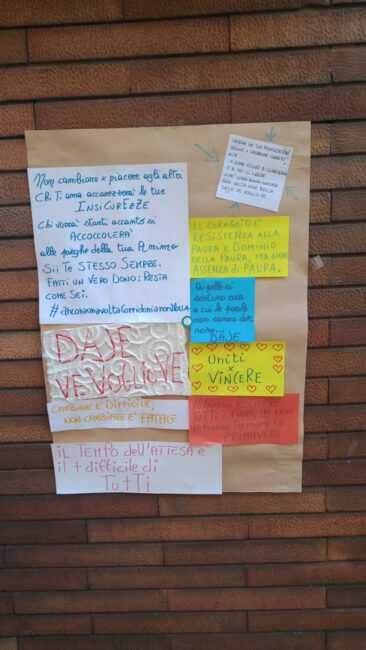 Non cambiare x piacere agli altri
Chi Ti ama accarezzerà le tue
INSICUREZZE
Chi vorrà starti accanto si
ACCOCCOLERÀ
alle pieghe della tua Anima
Sii TE STESSO SEMPRE.
FATTI UN VERO DONO: RESTA
COME SEI.
DAJE
VE VOGLIOVE
CAMBIARE E' DIFFICILE,
NON CAMBIARE E' FATALE
IL TEMPO dell'ATTESA è
il + difficile di
TuTTi
IL CORAGGIO E'
RESISTENZA ALLA
PAURA E DOMINIO
DELLA PAURA, MA NON
ASSENZA DI PAURA.
a pelle si
sentono cose
a cui le parole
non sanno dar
nome...
DAJE
Uniti
x
VINCERE
TUTTI I FIORI, MA NON
POTRANNO FERMARE LA
PRIMAVERA